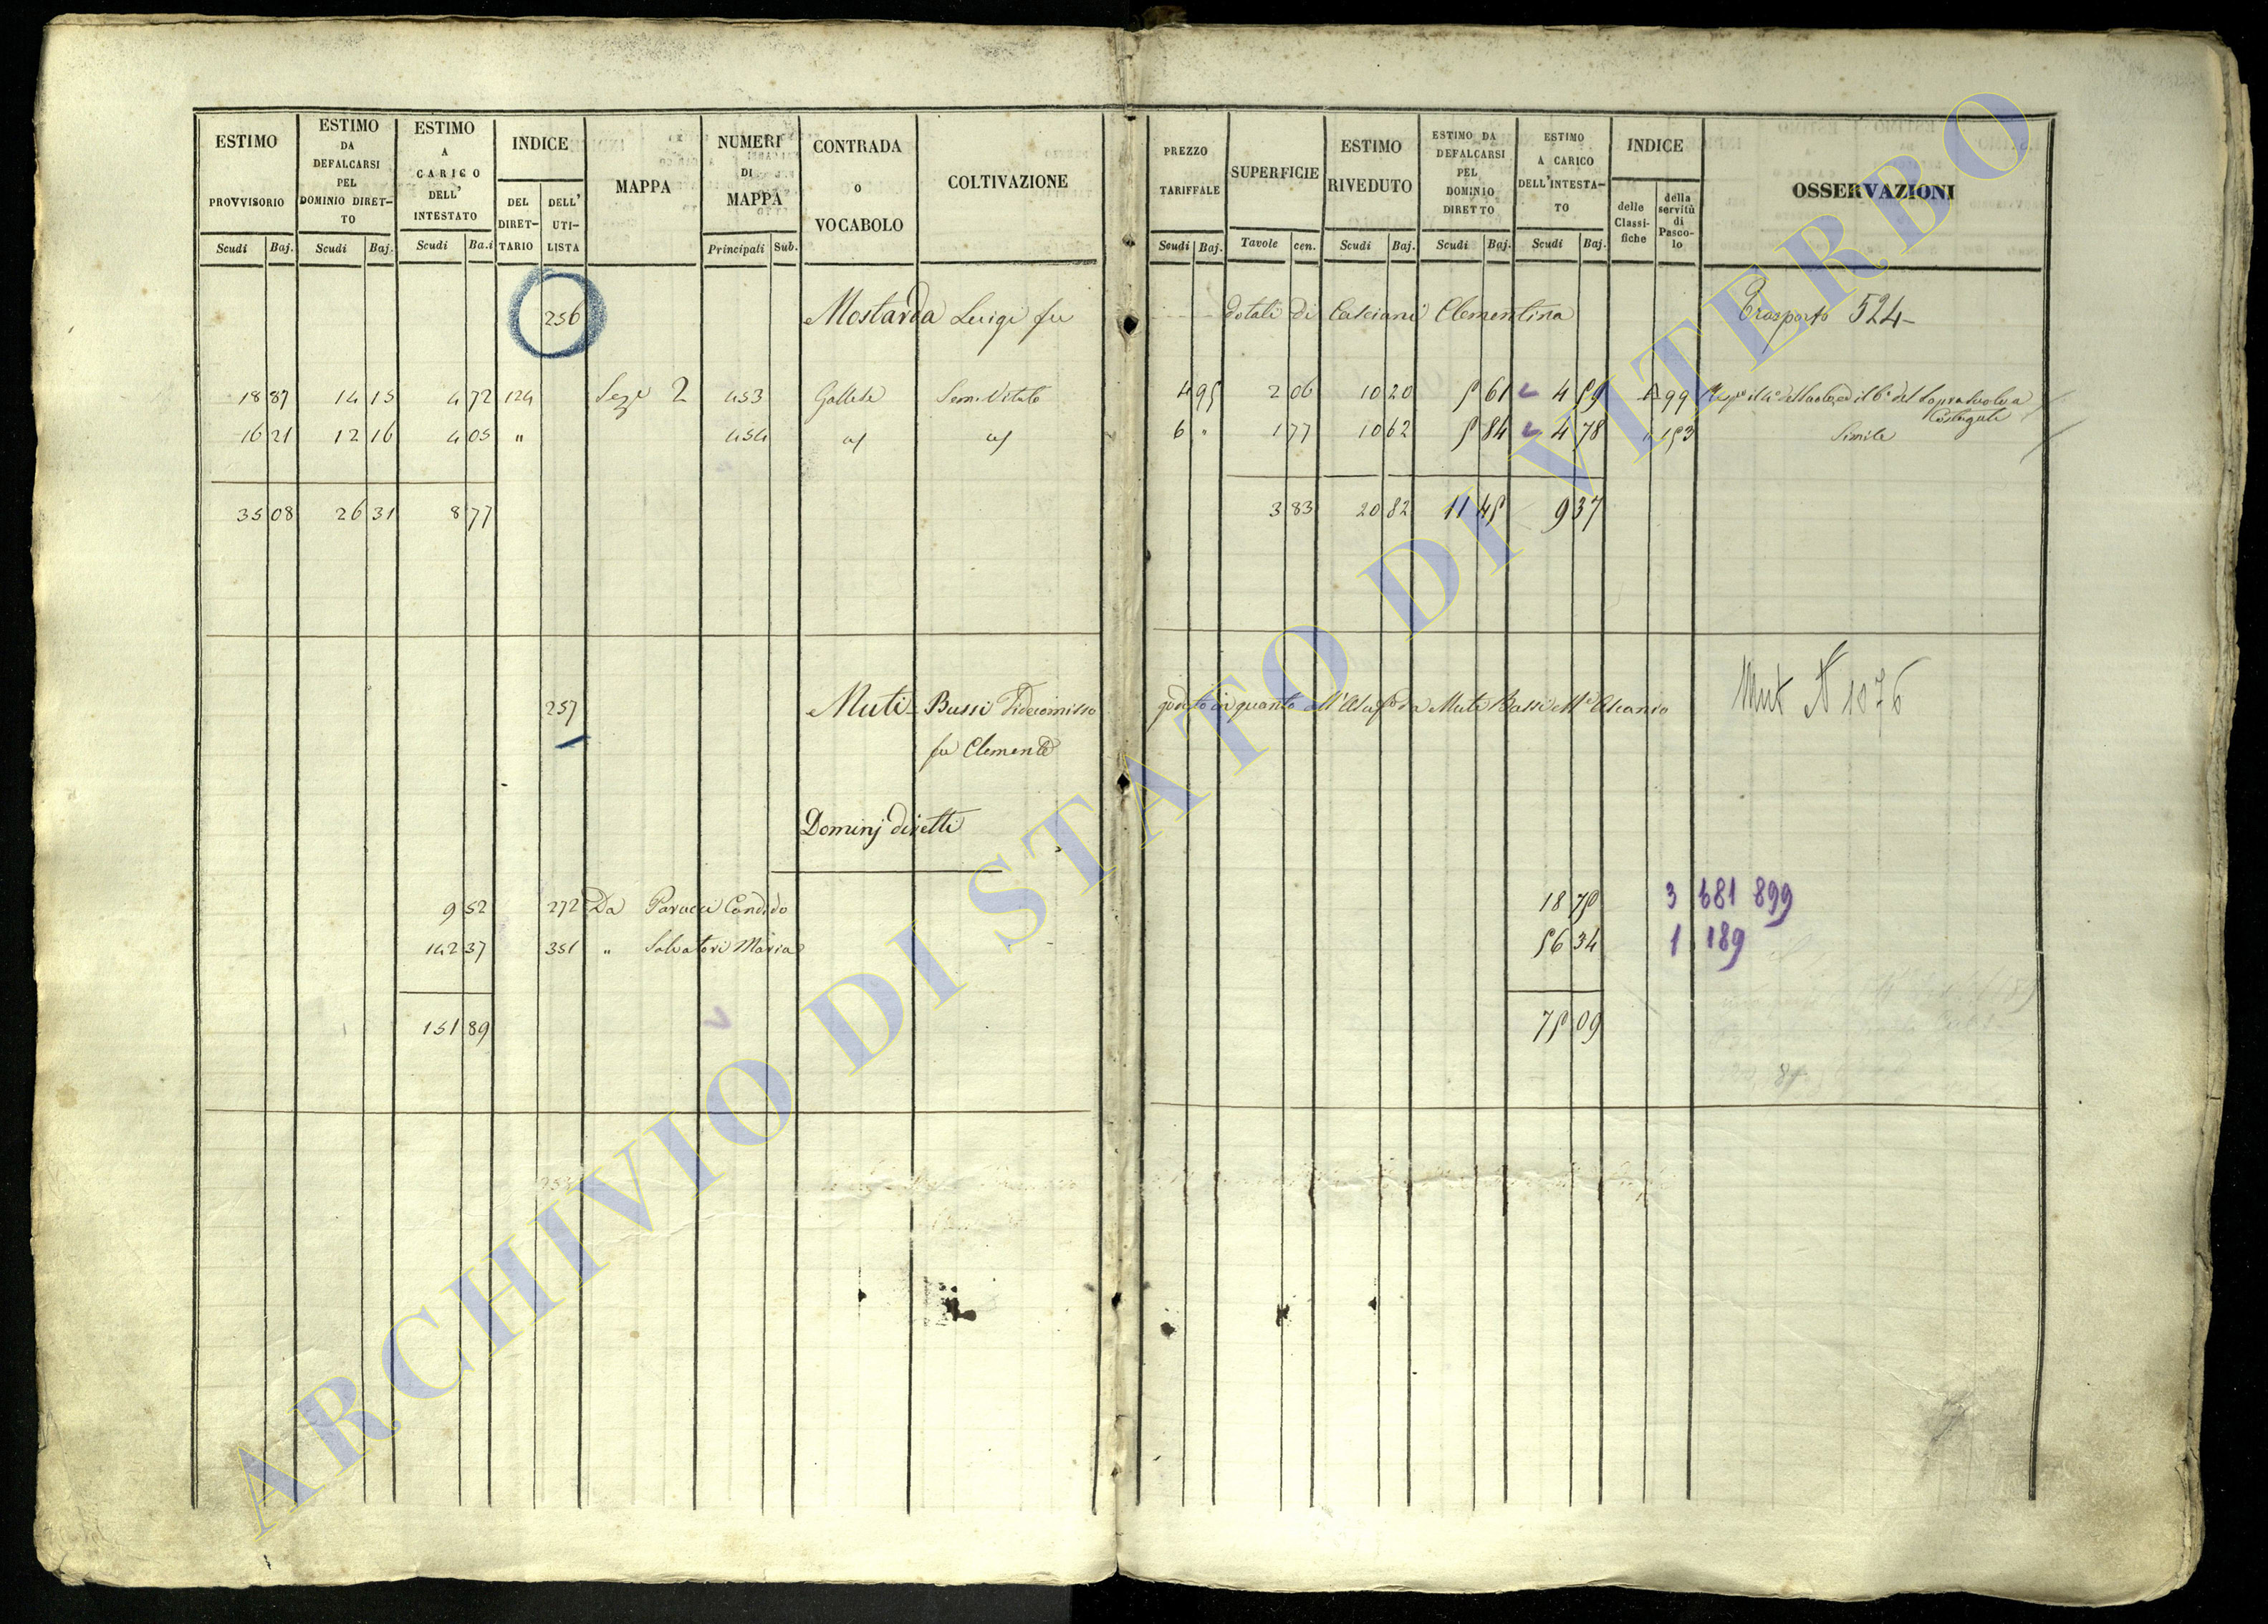 ESTIMO PROVVISORIO Scudi Baj.
ESTIMO DA DEFALCARSI PEL DOMINIO DIRETTO Scudi Baj.
ESTIMO A CARICO DELL' INTESTATO Scudi Ba.i
INDICE DEL DIRETTARIO DELL' UTILISTA
MAPPA
NUMERI DI MAPPA Principali Sub.
CONTRADA O VOCABOLO
COLTIVAZIONE
PREZZO TARIFFALE Scudi Baj.
SUPERFICIE Tavole cen.
ESTIMO RIVEDUTO Scudi Baj.
ESTIMO DA DEFALCARSI PEL DOMINIO DIRETTO Scudi Baj.
ESTIMO A CARICO DELL'INTESTATO Scudi Baj.
INDICE delle Classifiche della servitù di Pascolo
OSSERVAZIONI
256 Mostarda Luigi fu dotali di Casciani Clementina Trasporto 524
18 87 14 15 4 72 124 Sez. 2 453 Gallese Sem. Vitato 4 95 2 06 10 20 5 61 4 59 99
16 21 12 16 4 05 " 454 6 " 1 77 10 62 5 84 4 78 " 153 Simile
35 08 26 31 8 77 3 83 20 82 11 45 9 37
257 Muti Bussi Fidecomisso Mut N 1076
fu Clemente
Dominj diretti
9 52 272 Da Parucci Candido 18 75 3 681 899
142 37 351 " Salvatori Maria 56 34 1 189
151 89 75 09
ARCHIVIO DI STATO DI VITERBO